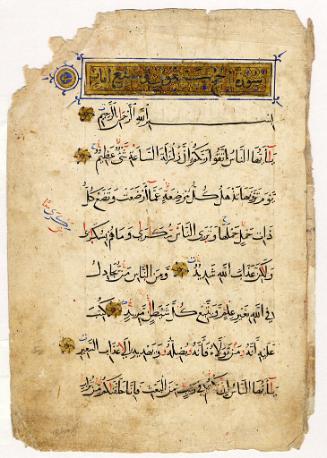 سورة الحج سبعون وسبع ايات
بسم الله الرحمن الرحيم
يا أيها الناس اتقوا ربكم إن زلزلة الساعة شيء عظيم
يوم ترونها تذهل كل مرضعة عما أرضعت وتضع كل
ذات حمل حملها وترى الناس سكرى وما هم بسكرى
ولكن عذاب الله شديد ومن الناس من يجادل
في الله بغير علم ويتبع كل شيطان مريد كتب
عليه أنه من تولاه فأنه يضله ويهديه إلى عذاب السعير
يا أيها الناس إن كنتم في ريب من البعث فإنا خلقناكم من تراب